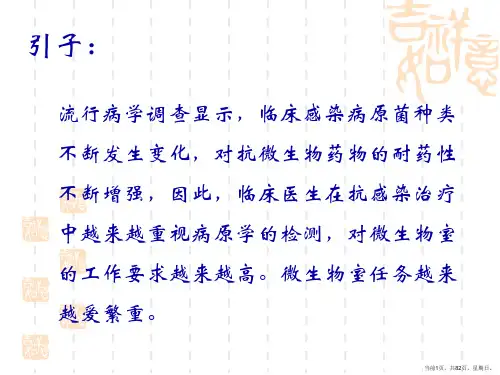 吉祥
如意
引子：
流行病学调查显示，临床感染病原菌种类
不断发生变化，对抗微生物药物的耐药性
不断增强，因此，临床医生在抗感染治疗
中越来越重视病原学的检测，对微生物室
的工作要求越来越高。微生物室任务越来
越爱繁重。
当前1页，共82页，星期日。